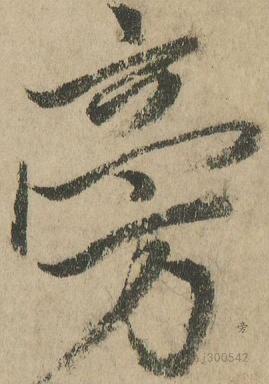 旁
旁
j300542